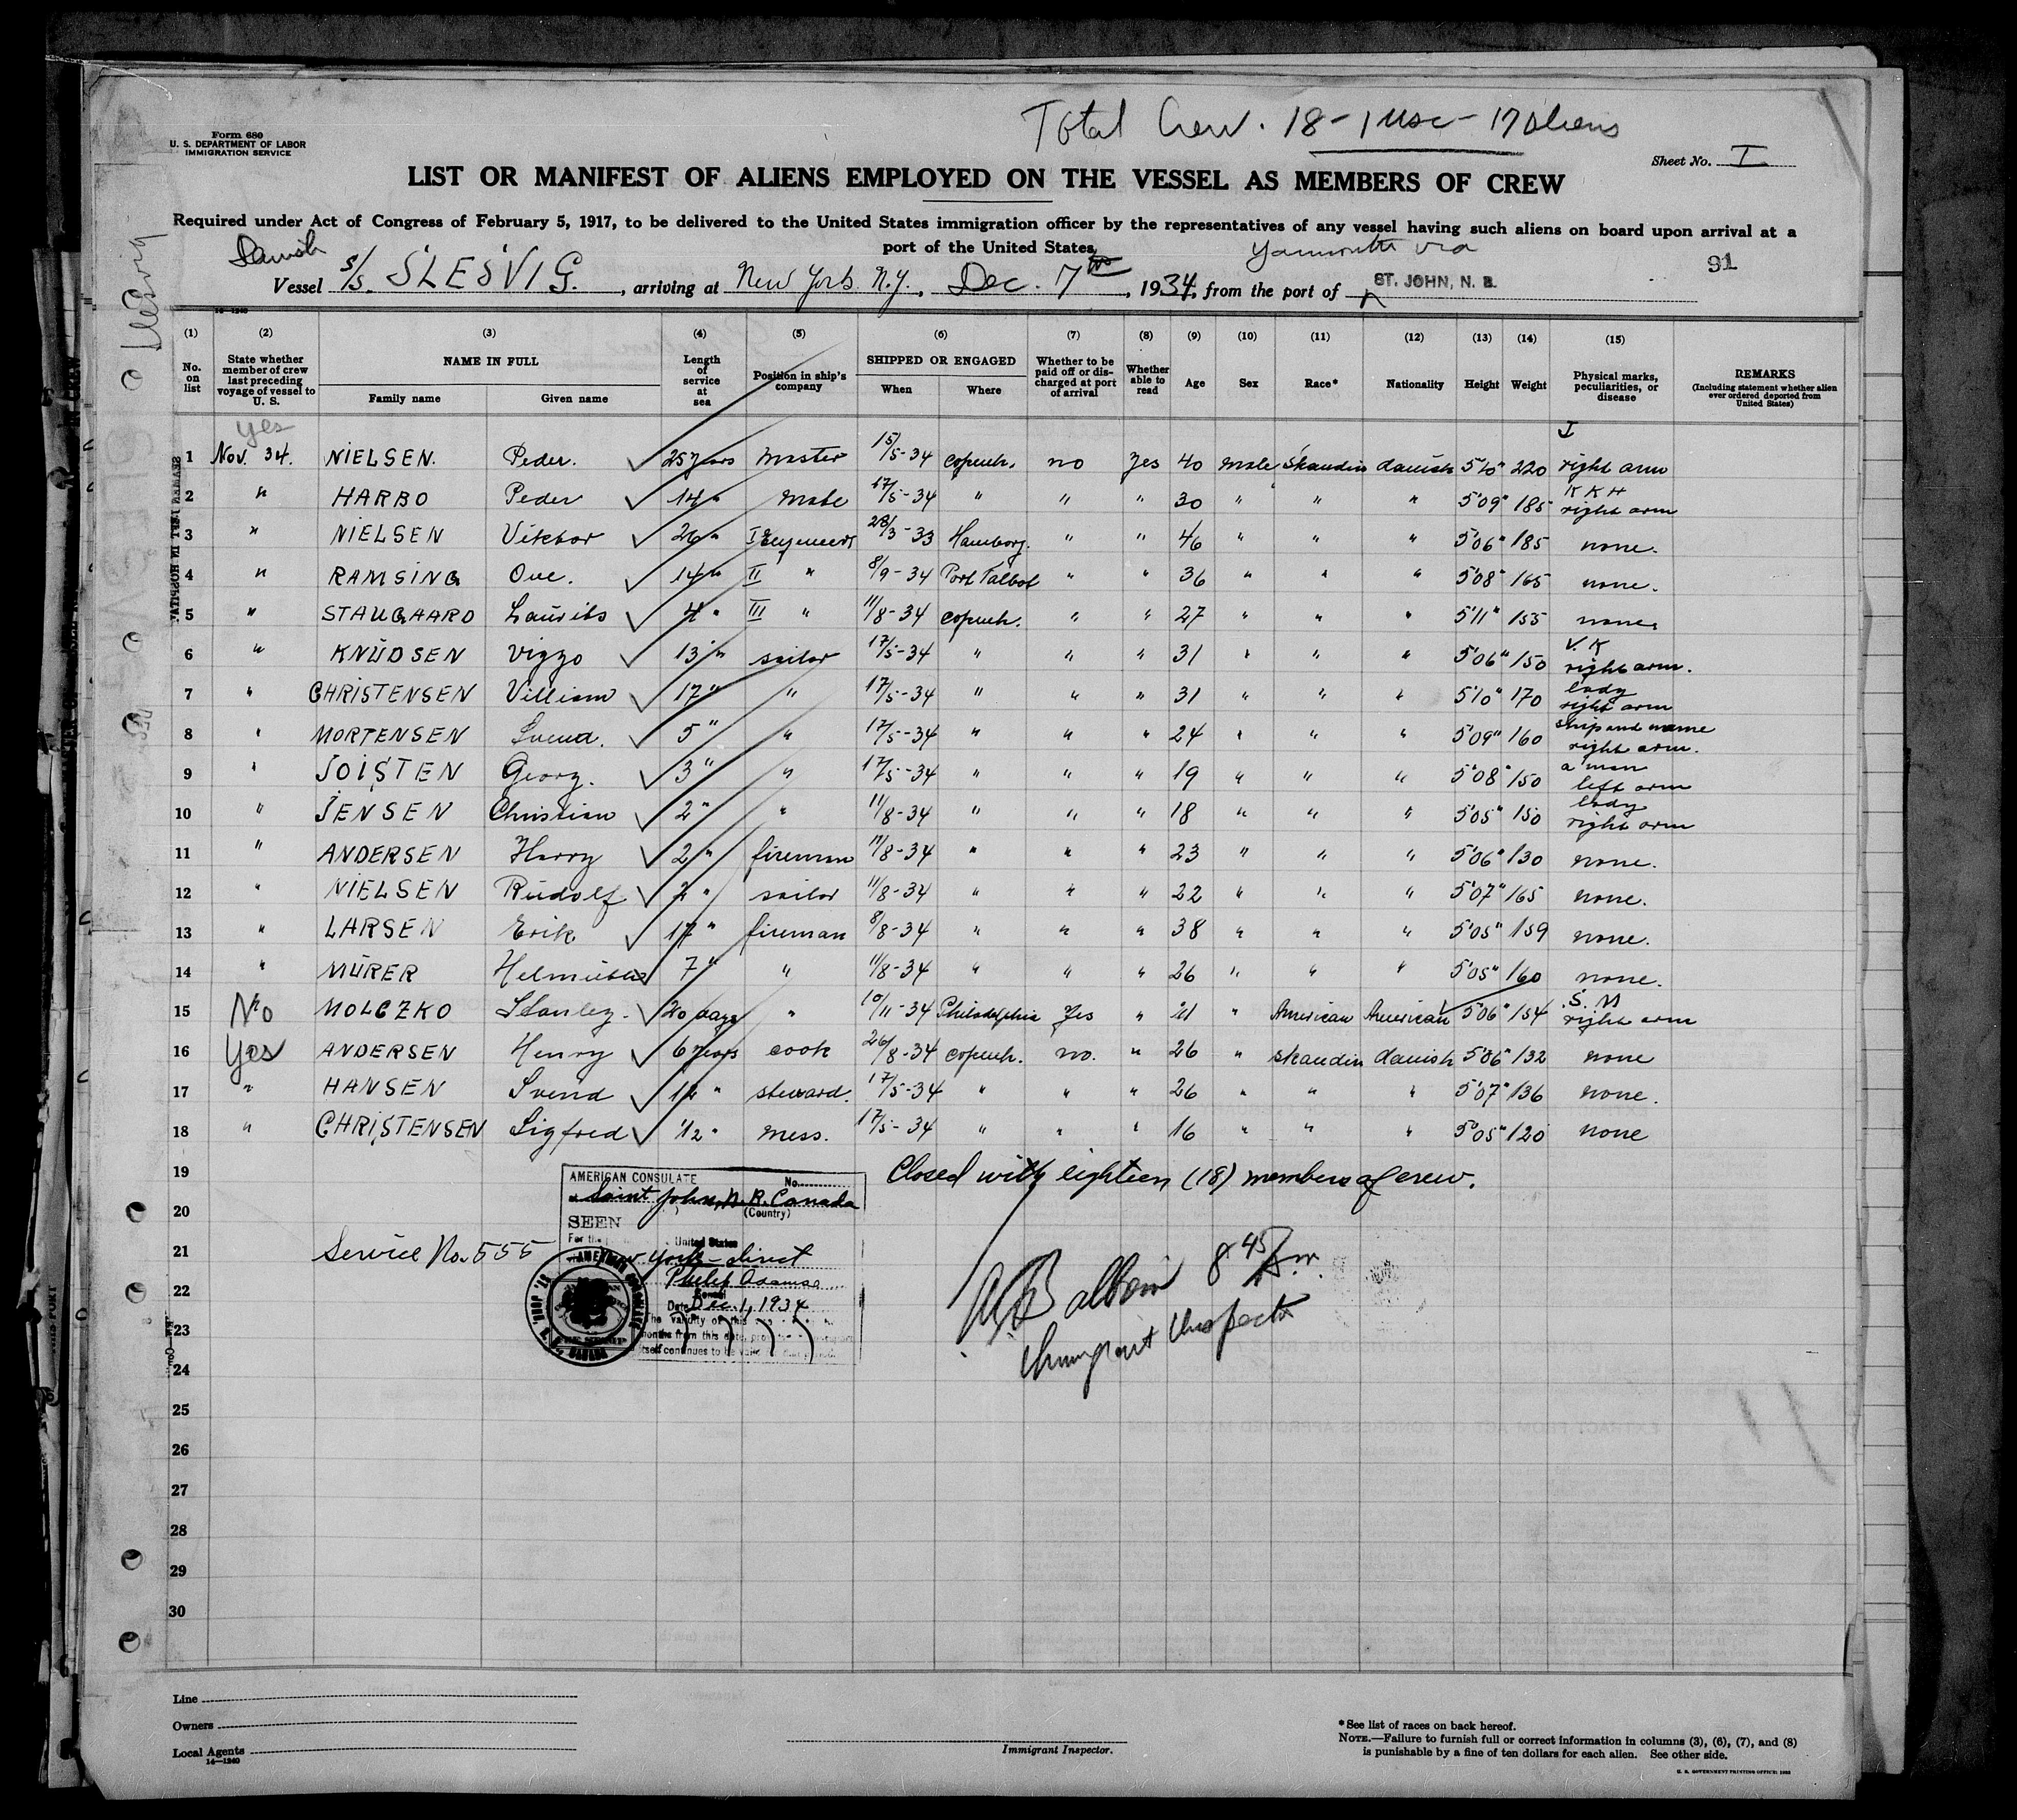 Total Crew. 18 - 1 usc - 17 aliens
Form 680
U. S. DEPARTMENT OF LABOR
IMMIGRATION SERVICE
Sheet No. I
LIST OR MANIFEST OF ALIENS EMPLOYED ON THE VESSEL AS MEMBERS OF CREW
Required under Act of Congress of February 5, 1917, to be delivered to the United States immigration officer by the representatives of any vessel having such aliens on board upon arrival at a
port of the United States
Danish
Yarmouth via
91
Vessel s/s. SLESVIG. , arriving at New York N.Y. , Dec. 7th , 1934, from the port of ST. JOHN, N. B.
(1) (2) (3) (4) (5) (6) (7) (8) (9) (10) (11) (12) (13) (14) (15)
No. on list
State whether member of crew last preceding voyage of vessel to U. S.
NAME IN FULL
Family name
Given name
Length of service at sea
Position in ship's company
SHIPPED OR ENGAGED
When
Where
Whether to be paid off or discharged at port of arrival
Whether able to read
Age
Sex
Race*
Nationality
Height
Weight
Physical marks, peculiarities, or disease
REMARKS
(Including statement whether alien ever ordered deported from United States)
yes
1 Nov. 34. NIELSEN. Peder. ✓ 25 years Master 15/5-34 copenh. no yes 40 male Skandin danish 5'10" 220 J right arm
2 " HARBO Peder ✓ 14 " Mate 17/5-34 " " " 30 " " " 5'09" 185 K K H right arm
3 " NIELSEN Viktor ✓ 26 " I Engineers 28/3-33 Hamborg. " " 46 " " " 5'06" 185 none.
4 " RAMSING Ove. ✓ 14 " II " 8/9-34 Port Talbot " " 36 " " " 5'08" 165 none.
5 " STAUGAARD Laurits ✓ 4 " III " 11/8-34 copenh. " " 27 " " " 5'11" 155 none.
6 " KNUDSEN Viggo ✓ 13 " sailor 17/5-34 " " " 31 " " " 5'06" 150 V. K right arm.
7 " CHRISTENSEN Villiam ✓ 17 " " 17/5-34 " " " 31 " " " 5'10" 170 lady right arm
8 " MORTENSEN Svend. ✓ 5 " " 17/5-34 " " " 24 " " " 5'09" 160 ship and name right arm.
9 " JOISTEN Georg. ✓ 3 " " 17/5-34 " " " 19 " " " 5'08" 150 a man left arm
10 " JENSEN Christian ✓ 2 " " 11/8-34 " " " 18 " " " 5'05" 150 lady right arm
11 " ANDERSEN Harry ✓ 2 " fireman 11/8-34 " " " 23 " " " 5'06" 130 none.
12 " NIELSEN Rudolf ✓ 2 " sailor 11/8-34 " " " 22 " " " 5'07" 165 none.
13 " LARSEN Erik ✓ 17 " fireman 8/8-34 " " " 38 " " " 5'05" 159 none.
14 " MÜRER Helmuth ✓ 7 " " 11/8-34 " " " 26 " " " 5'05" 160 none.
15 No MOLCZKO Stanley. ✓ 20 days " 10/11-34 Philadelphia Yes " 21 " American American 5'06" 154 S. M right arm
16 Yes ANDERSEN Henry ✓ 6 years cook 26/8-34 copenh. no. " 26 " skandin danish 5'06" 132 none
17 " HANSEN Svend ✓ 12 " steward. 17/5-34 " " " 26 " " " 5'07" 136 none.
18 " CHRISTENSEN Sigfred ✓ 1/2 " mess. 17/5-34 " " " 16 " " " 5'05" 120 none
19 Closed with eighteen (18) members of crew.
20
21
22
23
24
25
26
27
28
29
30
AMERICAN CONSULATE
No.
at Saint John, N.B. Canada
(Country)
SEEN
For the United States
York - direct
Service No. 555
Philip Adams
Consul
Date Dec. 1, 1934
The validity of this
months from this date
itself continues to be
AMERICAN CONSULATE
ST. JOHN, N. B., CANADA
8 45 A.m.
Immigrant Inspector
Slesvig
Line
Owners
Local Agents
14—1240
Immigrant Inspector.
*See list of races on back hereof.
NOTE.—Failure to furnish full or correct information in columns (3), (6), (7), and (8)
is punishable by a fine of ten dollars for each alien. See other side.
U. S. GOVERNMENT PRINTING OFFICE